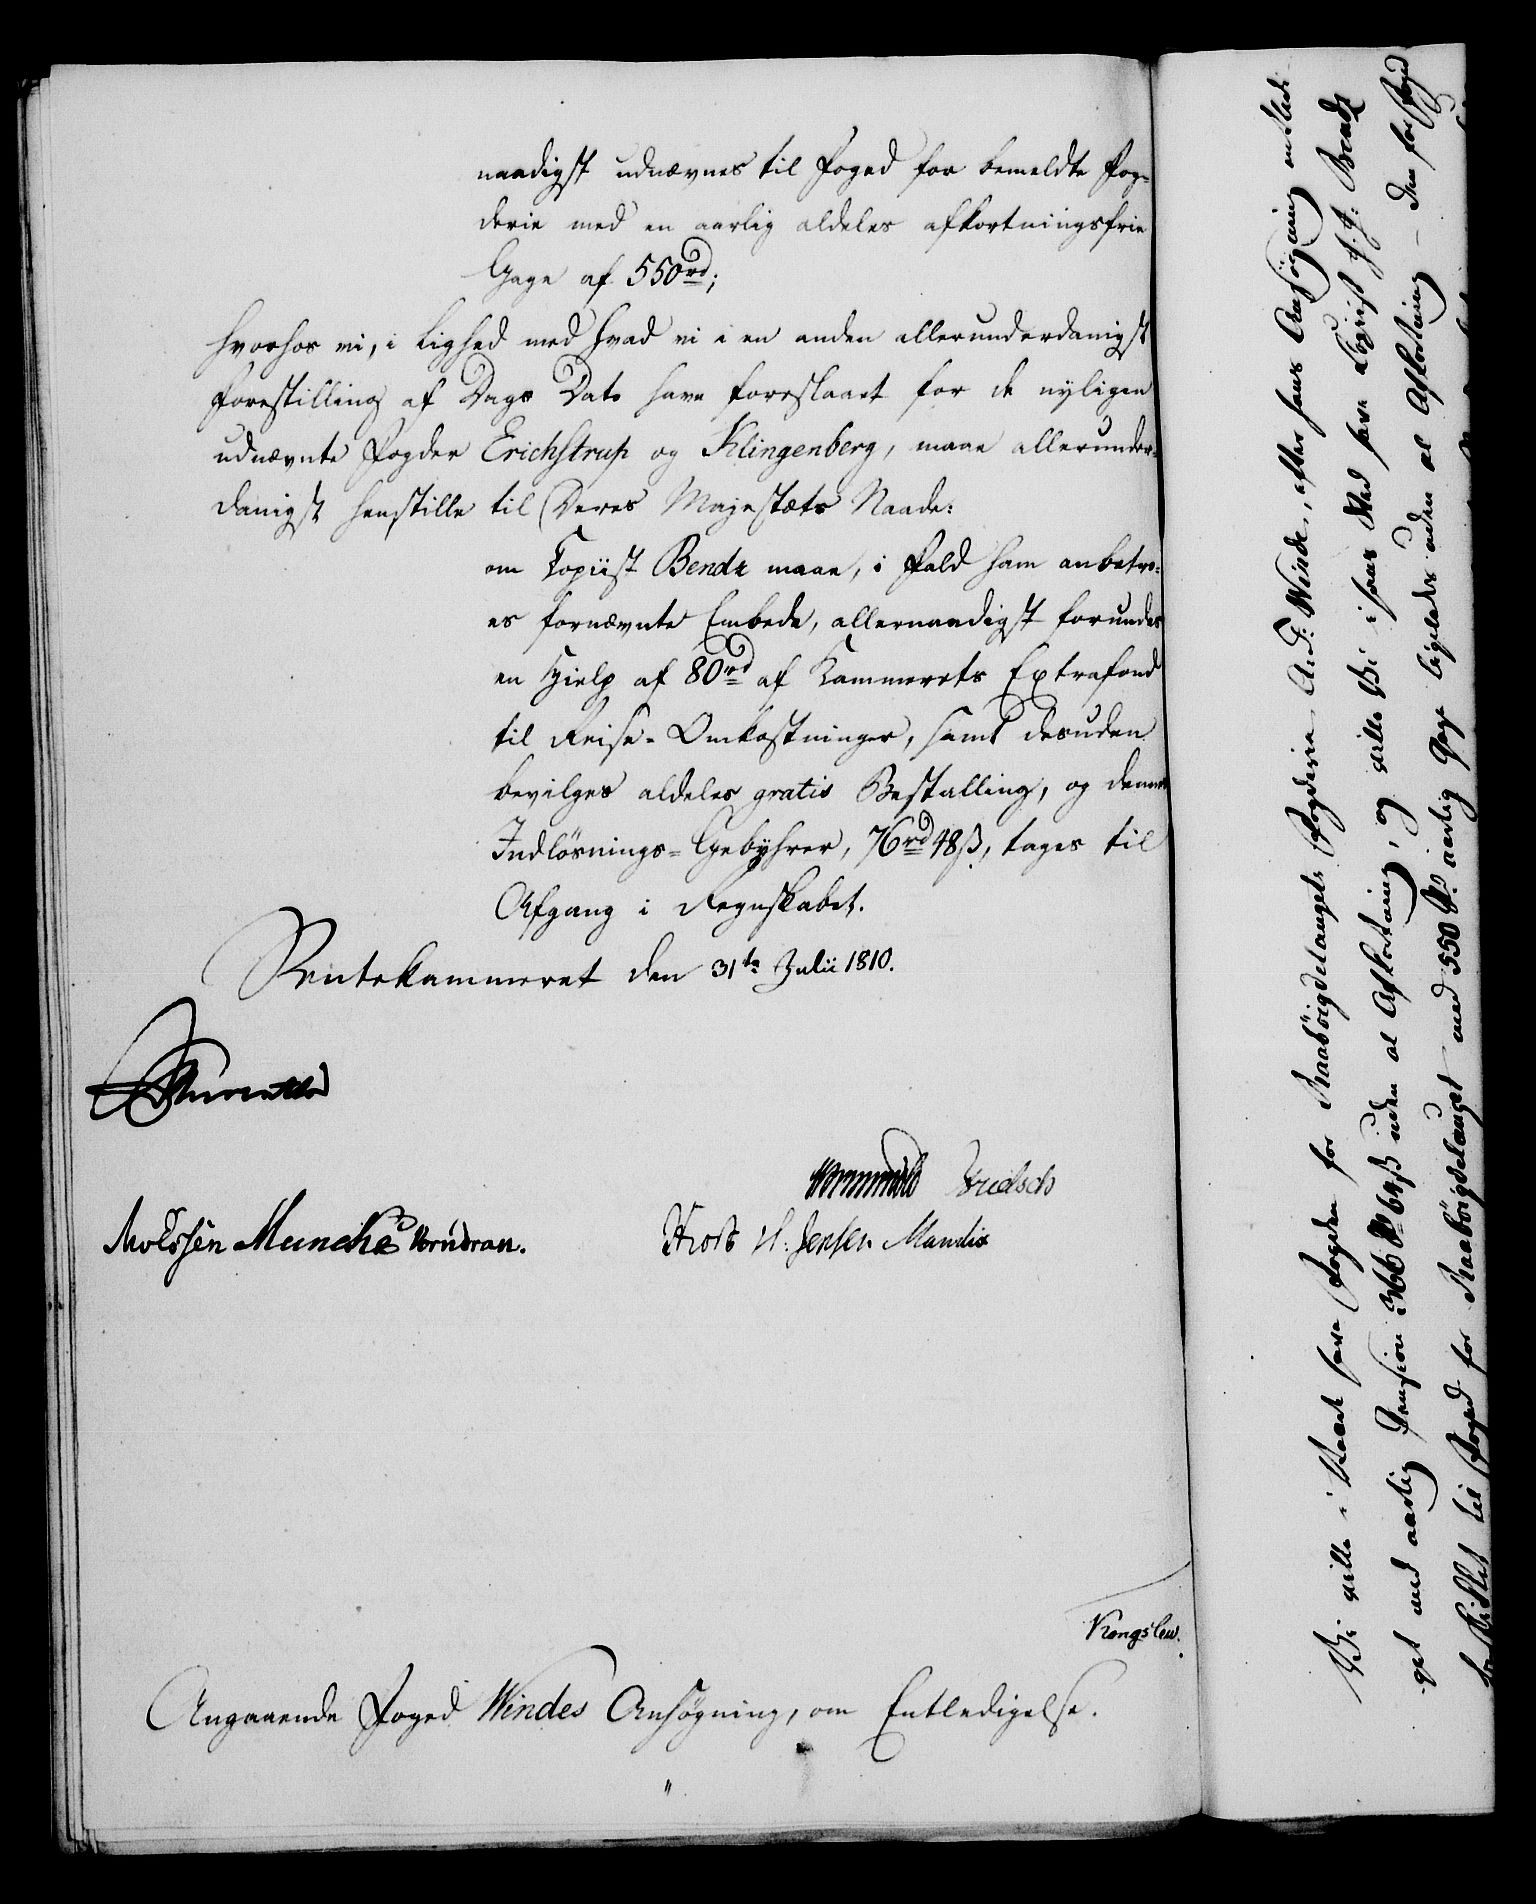 naadigst udnævnes til Foged for bemeldte Fog-
derie med en aarlig aldeles afkortningsfrie
Gage af 550 rd;
hvorhos vi, i Lighed med hvad vi i en anden allerunderdanigst
Forestilling af Dags Dato have foreslaaet for de nyligen
udnævnte Fogder Erichstrup og Klingenberg, maae allerunder-
danigst henstille til Deres Majestæts Naade:
om Copiist Bendz maae, i Fald ham anbetro-
es fornævnte Embede, allernaadigst forundes
en Hielp af 80 rd af Kammerets Extrafond
til Reise-Omkostninger, samt desuden
bevilges aldeles gratis Bestalling, og dennes
Indløsnings-Gebyhrer, 76 rd 48 ß, tages til
Afgang i Regnskabet.
Rentekammeret den 31te Julii 1810.
Wormskiold
Knoff H: Jensen Mandix
Kongslew.
Angaaende Foged Windes Ansøgning, om Entledigelse.
"
Vi ville i Naade have Fogden for Raabøigdelaugets Fogderie A. F: Winde, efter hans Ansøgning entledi-
get med aarlig Pension 366 Rd 64 ß uden al Afkortning, og ville Vi i hans Sted have Copiist J. J: Bendz
beskikket til Foged for Raabøigdelauget med 550 Rd aarlig Gage ligeledes uden al Afkortning